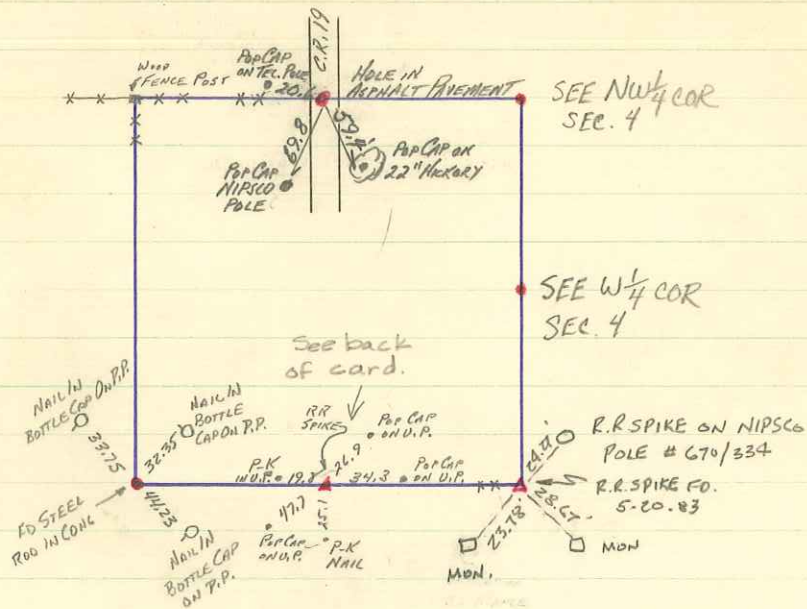 C.R. 19
WOOD
FENCE POST
POP CAP
ON TEL. POLE
20.6
HOLE IN
ASPHALT PAVEMENT
69.8
59.4
POP CAP
NIPSCO
POLE
POP CAP ON
22" HICKORY
SEE NW 1/4 COR
SEC. 4
SEE W 1/4 COR
SEC. 4
See back
of card.
NAIL IN
BOTTLE CAP ON P.P.
33.75
NAIL IN
BOTTLE
CAP ON P.P.
32.35
RR
SPIKE
POP CAP
ON U.P.
26.9
P-K
IN U.P.
34.3
POP CAP
ON U.P.
R.R SPIKE ON NIPSCO
POLE # 670/334
R.R. SPIKE FD.
5-20-83
28.67
23.78
MON.
MON
FD STEEL
ROD IN CONC
44.23
NAIL IN
BOTTLE CAP
ON P.P.
47.7
POP CAP
ON U.P.
25.1
P-K
NAIL